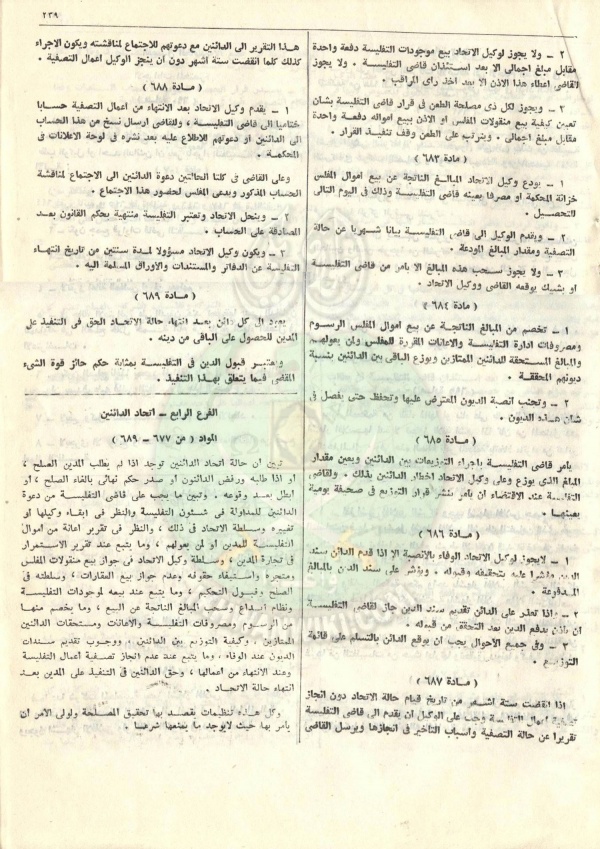 ٢٣٩
٢ ــ ولا يجوز لوكيل الاتحاد بيع موجودات التفليسة دفعة واحدة
مقابل مبلغ اجمالى الا بعد استئذان قاضى التفليسة . ولا يجوز
للقاضى اعطاء هذا الاذن الا بعد اخذ راى المراقب .
٣ ــ ويجوز لكل ذى مصلحة الطعن فى قرار قاضى التفليسة بشأن
تعين كيفية بيع منقولات المفلس او الاذن ببيع امواله دفعة واحدة
مقابل مبلغ اجمالى . ويترتب على الطعن وقف تنفيذ القرار .
( مادة ٦٨٣ )
١ ــ يودع وكيل الاتحاد المبالغ الناتجة عن بيع اموال المفلس
خزانة المحكمة او مصرفا يعينه قاضى التفليسة وذلك فى اليوم التالى
للتحصيل .
٢ ــ ويقدم الوكيل الى قاضى التفليسة بيانا شهريا عن حالة
التصفية ومقدار المبالغ المودعة .
٣ ــ ولا يجوز سحب هذه المبالغ الا بامر من قاضى التفليسة
او بشيك يوقعه القاضى ووكيل الاتحاد .
( مادة ٦٨٤ )
١ ــ تخصم من المبالغ الناتجة عن بيع اموال المفلس الرسوم
ومصروفات ادارة التفليسة والاعانات المقررة للمفلس ولمن يعولهم
والمبالغ المستحقة الدائنين الممتازين ويوزع الباقى بين الدائنين بنسبة
ديونهم المحققة .
٢ ــ وتجنب انصبة الديون المعترض عليها وتحفظ حتى يفصل فى
شان هذه الديون .
( مادة ٦٨٥ )
يامر قاضى التفليسة باجراء التوزيعات بين الدائنين ويعين مقدار
المبلغ الذى يوزع وعلى وكيل الاتحاد اخطار الدائنين بذلك . ولقاضى
التفليسة عند الاقتضاء ان يامر بنشر قرار التوزيع فى صحيفة يومية
يعينها .
( مادة ٦٨٦ )
١ ــ لايجوز لوكيل الاتحاد الوفاء بالانصبة الا اذا قدم الدائن سند
الدين مؤشرا عليه بتحقيقه وقبوله . ويؤشر على سند الدين بالمبالغ
المدفوعة .
٢ ــ واذا تعذر على الدائن تقديم سند الدين جاز لقاضى التفليسة
ان ياذن بدفع الدين بعد التحقق من قبوله .
٣ ــ وفى جميع الاحوال يجب ان يوقع الدائن بالتسلم على قائمة
التوزيع .
( مادة ٦٨٧ )
اذا انقضت ستة اشهر من تاريخ قيام حالة الاتحاد دون انجاز
اعمال وجب على الوكيل ان يقدم الى قاضى التفليسة
تقريرا عن حالة التصفية واسباب التاخير فى انجازها ويرسل القاضى
هذا التقرير الى الدائنين مع دعوتهم للاجتماع لمناقشته ويكون الاجراء
كذلك كلما انقضت ستة اشهر دون أن ينجز الوكيل اعمال التصفية .
( مادة ٦٨٨ )
١ ــ يقدم وكيل الاتحاد بعد الانتهاء من اعمال التصفية حسابا
ختاميا الى قاضى التفليسة ، وللقاضى ارسال نسخ من هذا الحساب
الى الدائنين او دعوتهم للاطلاع عليه بعد نشره فى لوحة الاعلانات فى
المحكمة .
وعلى القاضى فى كلتا الحالتين دعوة الدائنين الى الاجتماع لمناقشة
الحساب المذكور ويدعى المفلس لحضور هذا الاجتماع .
٢ ــ وينحل الاتحاد وتعتبر التفليسة منتهية بحكم القانون بعد
المصادقة على الحساب .
٣ ــ ويكون وكيل الاتحاد مسؤولا لمدة سنتين من تاريخ انتهاء
التفليسة عن الدفاتر والمستندات والاوراق المسلمة اليه .
( مادة ٦٨٩ )
يعود الى كل دائن بعد انتهاء حالة الاتحاد الحق فى التنفيذ على
المدين للحصول على الباقى من دينه .
ويعتبر قبول الدين فى التفليسة بمثابة حكم حائز قوة الشىء
المقضى فيما يتعلق بهذا التنفيذ .
الفرع الرابع ــ اتحاد الدائنين
المواد ( من ٦٧٧ ــ ٦٨٩ )
تبين ان حالة اتحاد الدائنين توجد اذا لم يطلب المدين الصلح ،
او اذا طلبه ورفض الدائنون او صدر حكم نهائى بالغاء الصلح ، او
ابطل بعد وقوعه . وتبين ما يجب على قاضى التفليسة من دعوة
الدائنين للمداولة فى شئون التفليسة والنظر فى ابقاء وكيلها او
تغييره وسلطة الاتحاد فى ذلك ، والنظر فى تقرير اعانة من اموال
التفليسة للمدين او لمن يعولهم ، وما يتبع عند تقرير الاستمرار
فى تجارة المدين ، وسلطة وكيل الاتحاد فى جواز بيع منقولات المفلس
ومتجره واستيفاء حقوقه وعدم جواز بيع العقارات ، وسلطته فى
الصلح وقبول التحكيم ، وما يتبع عند بيعه لموجودات التفليسة
ونظام ايداع وسحب المبالغ الناتجة عن البيع ، وما يخصم منها
من الرسوم ومصروفات التفليسة والاعانات ومستحقات الدائنين
الممتازين ، وكيفية التوزيع بين الدائنين . ووجوب تقديم سندات
الديون عند الوفاء ، وما يتبع عند عدم انجاز تصفية أعمال التفليسة
وعند الانتهاء من اعمالها ، وحق الدائنين فى التنفيذ على المدين بعد
انتهاء حالة الاتحاد .
وكل هذه تنظيمات يقصد بها تحقيق المصلحة ولولى الامر ان
يأمر بها حيث لايوجد ما يمنعها شرعا .